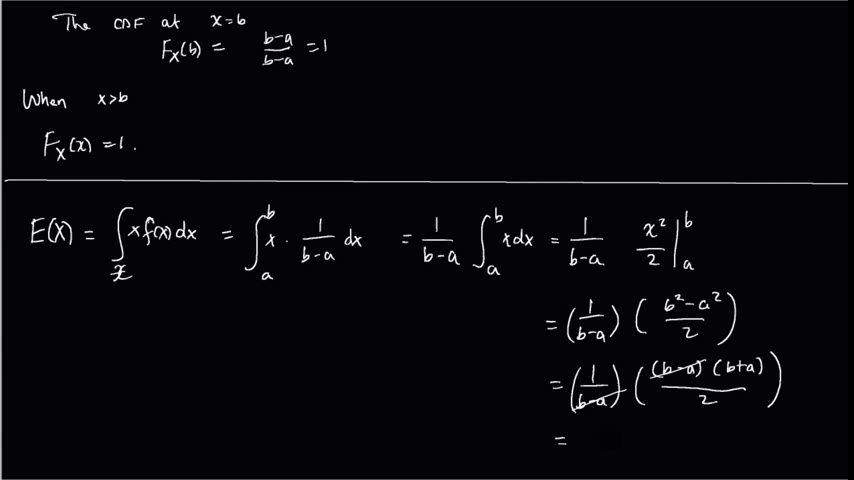 The CDF at x=b
F_X(b) = \frac{b-a}{b-a} = 1
When x>b
F_X(x) = 1.
E(X) = \int_{x} x f(x) dx = \int_a^b x \cdot \frac{1}{b-a} dx = \frac{1}{b-a} \int_a^b x dx = \frac{1}{b-a} \frac{x^2}{2} |_a^b
= (\frac{1}{b-a}) (\frac{b^2-a^2}{2})
= (\frac{1}{b-a}) (\frac{(b-a)(b+a)}{2})
=